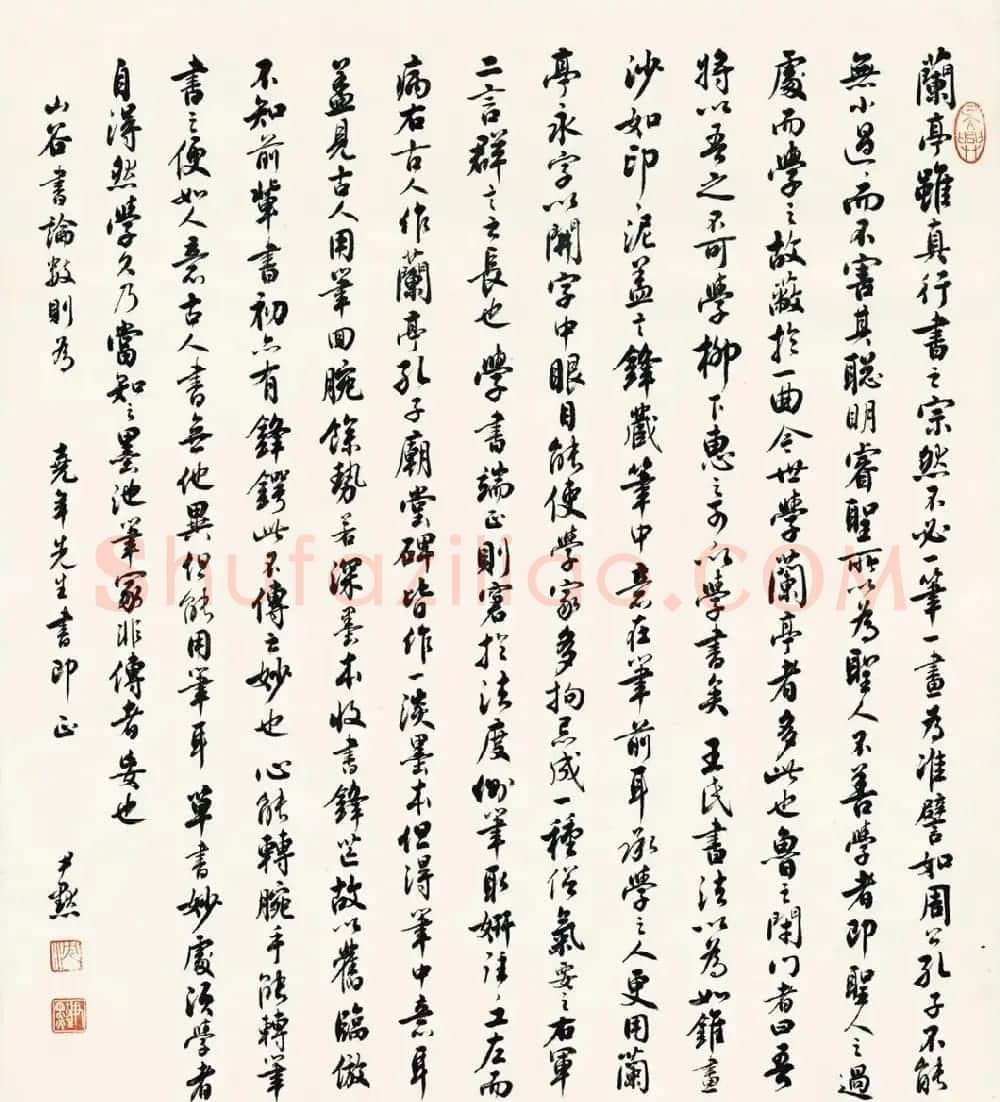 蘭亭雖真行書之宗然不必一筆一畫為准譬如周公孔子不能
無小過過而不害其聰明睿聖所以為聖人不善學者即聖人之過
處而學之故蔽於一曲今世學蘭亭者多此也魯之閉門者曰吾
將以吾之不可學柳下惠之可以學書矣 王氏書法以為如錐畫
沙如印印泥蓋言鋒藏筆中意在筆前耳承學之人更用蘭
亭永字以開字中眼目能使學家多拘忌成一種俗氣要之右軍
二言群言之長也 學書端正則窘於法度側筆取妍往往工左而
病右古人作蘭亭孔子廟堂碑皆作一淡墨本但得筆中意耳
蓋見古人用筆回腕餘勢若深墨本收書鋒芒故以舊臨倣
不知前輩書初亦有鋒鍔此不傳之妙也 心能轉腕手能轉筆
書之便如人意古人書無他異但能用筆耳 草書妙處須學者
自得然學久乃當知之墨池筆冢非傳者妄也
山谷書論數則為 堯年先生書即正 尹默
Shufaziliao.COM